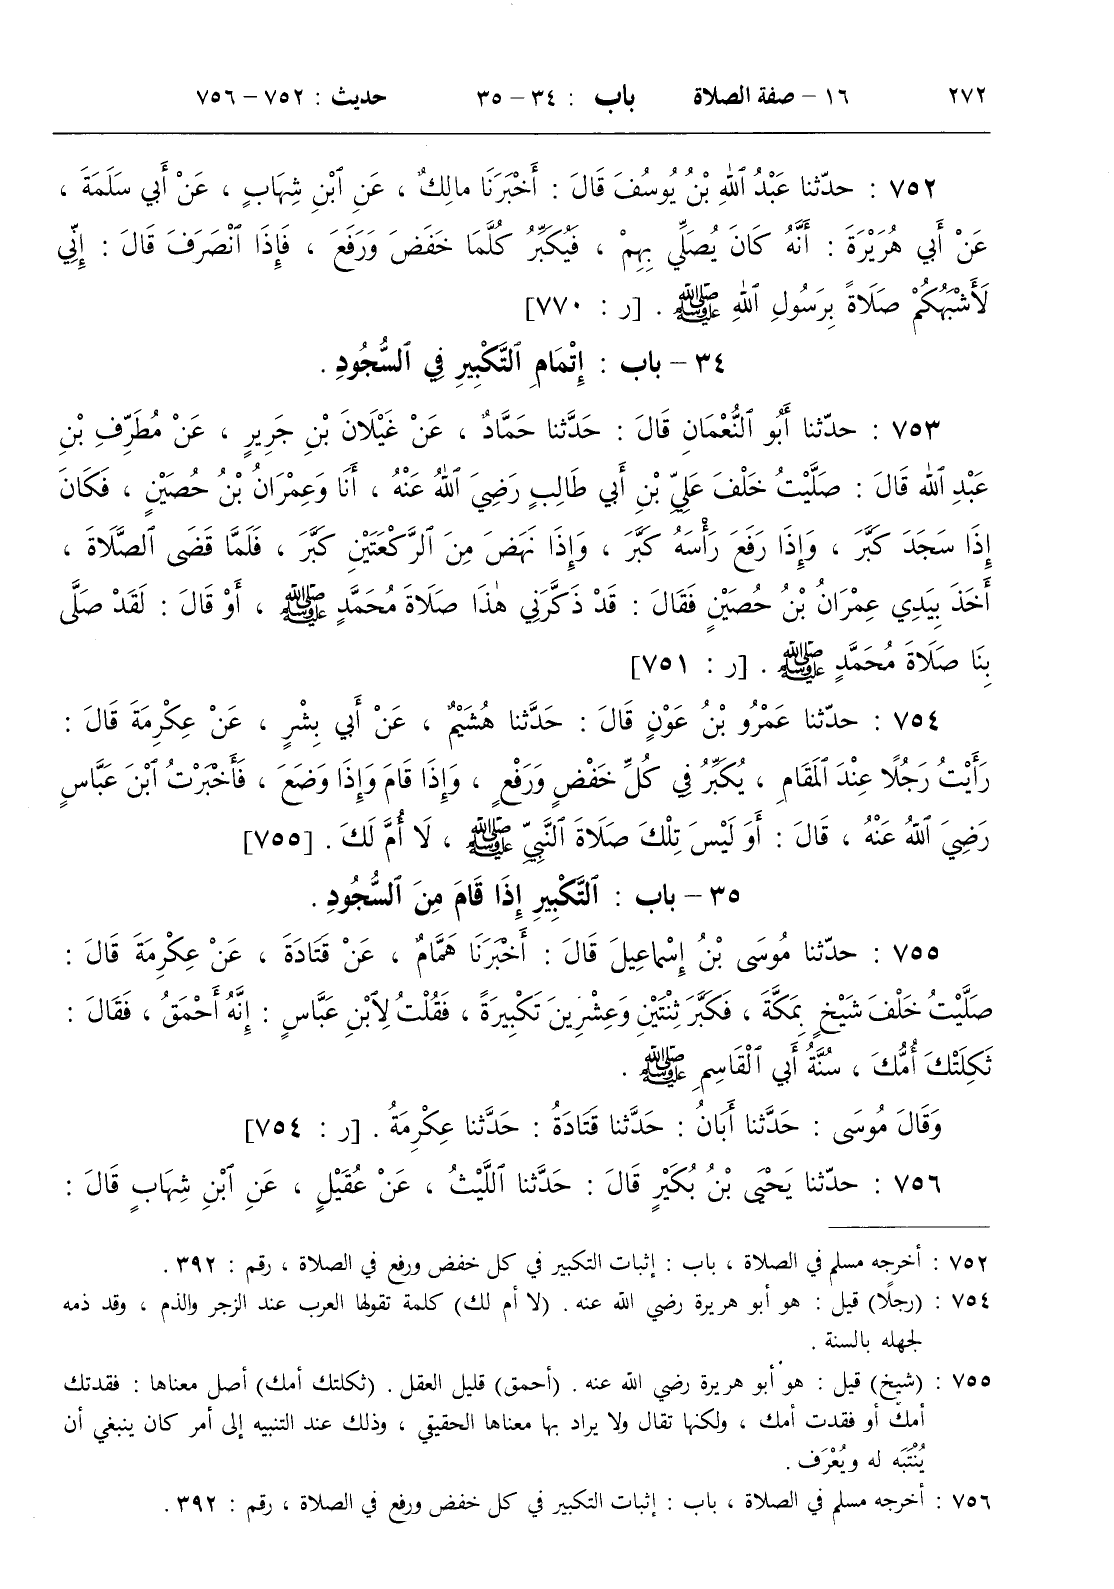 ٢٧٢ ١٦ – صفة الصلاة باب : ٣٤ – ٣٥ حديث : ٧٥٢ – ٧٥٦
٧٥٢ : حدّثنا عَبْدُ ٱللهِ بْنُ يُوسُفَ قَالَ : أَخْبَرَنَا مالِكٌ ، عَنِ ٱبْنِ شِهَابٍ ، عَنْ أَبِي سَلَمَةَ ،
عَنْ أَبِي هُرَيْرَةَ : أَنَّهُ كَانَ يُصَلِّي بِهِمْ ، فَيُكَبِّرُ كُلَّمَا خَفَضَ وَرَفَعَ ، فَإِذَا ٱنْصَرَفَ قَالَ : إِنِّي
لَأَشْبَهُكُمْ صَلَاةً بِرَسُولِ ٱللهِ ﷺ . [ر : ٧٧٠]
٣٤ – باب : إِتْمَامِ ٱلتَّكْبِيرِ فِي ٱلسُّجُودِ .
٧٥٣ : حدّثنا أَبُو ٱلنُّعْمَانِ قَالَ : حَدَّثَنا حَمَّادٌ ، عَنْ غَيْلَانَ بْنِ جَرِيرٍ ، عَنْ مُطَرِّفِ بْنِ
عَبْدِ ٱللهِ قَالَ : صَلَّيْتُ خَلْفَ عَلِيِّ بْنِ أَبِي طَالِبٍ رَضِيَ ٱللهُ عَنْهُ ، أَنَا وَعِمْرَانُ بْنُ حُصَيْنٍ ، فَكَانَ
إِذَا سَجَدَ كَبَّرَ ، وَإِذَا رَفَعَ رَأْسَهُ كَبَّرَ ، وَإِذَا نَهَضَ مِنَ ٱلرَّكْعَتَيْنِ كَبَّرَ ، فَلَمَّا قَضَى ٱلصَّلَاةَ ،
أَخَذَ بِيَدِي عِمْرَانُ بْنُ حُصَيْنٍ فَقَالَ : قَدْ ذَكَّرَنِي هٰذَا صَلَاةَ مُحَمَّدٍ ﷺ ، أَوْ قَالَ : لَقَدْ صَلَّى
بِنَا صَلَاةَ مُحَمَّدٍ ﷺ . [ر : ٧٥١]
٧٥٤ : حدّثنا عَمْرُو بْنُ عَوْنٍ قَالَ : حَدَّثَنا هُشَيْمٌ ، عَنْ أَبِي بِشْرٍ ، عَنْ عِكْرِمَةَ قَالَ :
رَأَيْتُ رَجُلًا عِنْدَ ٱلمَقَامِ ، يُكَبِّرُ فِي كُلِّ خَفْضٍ وَرَفْعٍ ، وَإِذَا قَامَ وَإِذَا وَضَعَ ، فَأَخْبَرْتُ ٱبْنَ عَبَّاسٍ
رَضِيَ ٱللهُ عَنْهُ ، قَالَ : أَوَ لَيْسَ تِلْكَ صَلَاةَ ٱلنَّبِيِّ ﷺ ، لَا أُمَّ لَكَ . [٧٥٥]
٣٥ – باب : ٱلتَّكْبِيرِ إِذَا قَامَ مِنَ ٱلسُّجُودِ .
٧٥٥ : حدّثنا مُوسَى بْنُ إِسْماعِيلَ قَالَ : أَخْبَرَنَا هَمَّامٌ ، عَنْ قَتَادَةَ ، عَنْ عِكْرِمَةَ قَالَ :
صَلَّيْتُ خَلْفَ شَيْخٍ بِمَكَّةَ ، فَكَبَّرَ ثِنْتَيْنِ وَعِشْرِينَ تَكْبِيرَةً ، فَقُلْتُ لِٱبْنِ عَبَّاسٍ : إِنَّهُ أَحْمَقُ ، فَقَالَ :
ثَكِلَتْكَ أُمُّكَ ، سُنَّةُ أَبِي ٱلْقَاسِمِ ﷺ .
وَقَالَ مُوسَى : حَدَّثَنا أَبَانُ : حَدَّثَنا قَتَادَةُ : حَدَّثَنا عِكْرِمَةُ . [ر : ٧٥٤]
٧٥٦ : حدّثنا يَحْيَى بْنُ بُكَيْرٍ قَالَ : حَدَّثَنا ٱللَّيْثُ ، عَنْ عُقَيْلٍ ، عَنِ ٱبْنِ شِهَابٍ قَالَ :
٧٥٢ : أخرجه مسلم في الصلاة ، باب : إثبات التكبير في كل خفض ورفع في الصلاة ، رقم : ٣٩٢ .
٧٥٤ : (رجلًا) قيل : هو أبو هريرة رضي الله عنه . (لا أم لك) كلمة تقولها العرب عند الزجر والذم ، وقد ذمه
لجهله بالسنة .
٧٥٥ : (شيخ) قيل : هو أبو هريرة رضي الله عنه . (أحمق) قليل العقل . (ثكلتك أمك) أصل معناها : فقدتك
أمك أو فقدت أمك ، ولكنها تقال ولا يراد بها معناها الحقيقي ، وذلك عند التنبيه إلى أمر كان ينبغي أن
يُنْتَبَه له ويُعْرَف .
٧٥٦ : أخرجه مسلم في الصلاة ، باب : إثبات التكبير في كل خفض ورفع في الصلاة ، رقم : ٣٩٢ .